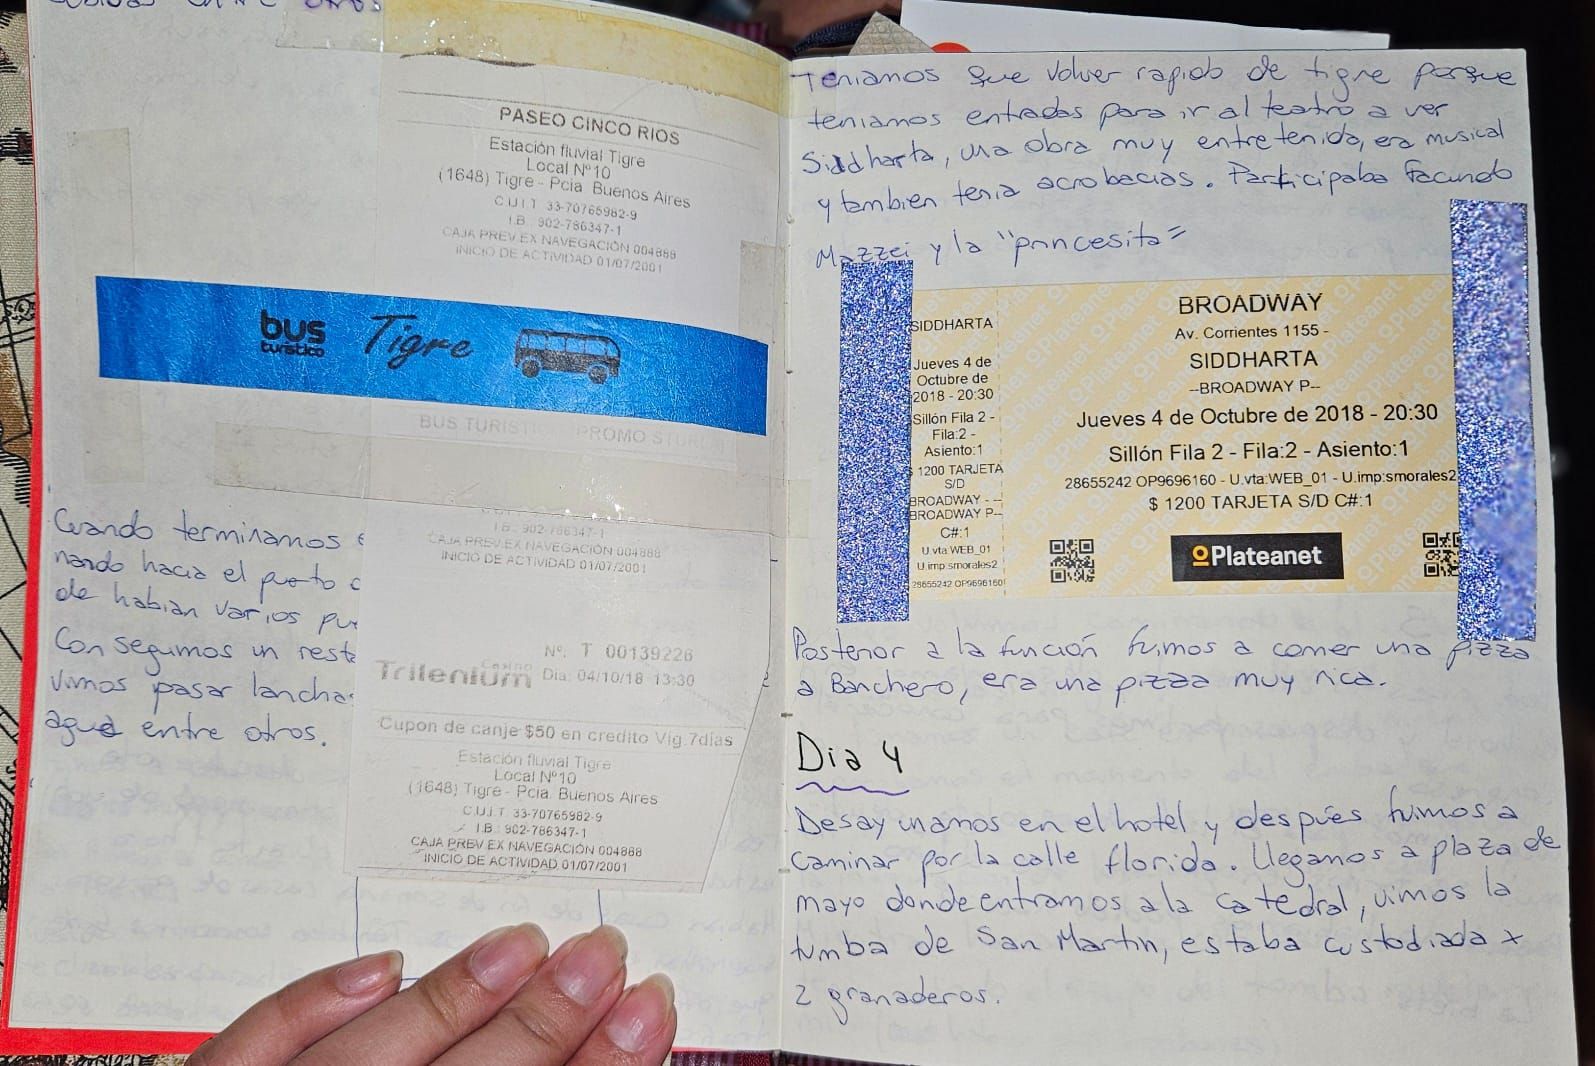 PASEO CINCO RIOS
Estación fluvial Tigre
Local Nº10
(1648) Tigre - Pcia. Buenos Aires
C.U.I.T. 33-70765982-9
I.B.: 902-786347-1
CAJA PREV.EX NAVEGACIÓN 004888
INICIO DE ACTIVIDAD 01/07/2001
bus
turístico
Tigre
BUS TURIST PROMO STUR
I.B.: 902-786347-1
CAJA PREV.EX NAVEGACIÓN 004888
INICIO DE ACTIVIDAD 01/07/2001
Cuando terminamos
nando hacia el puerto
de habian varios pu
Conseguimos un rest
vimos pasar lancha
agua entre otros.
Nº. T 00139226
Casino
Trilenium Dia: 04/10/18 13:30
Cupon de canje $50 en credito Vig.7dias
Estación fluvial Tigre
Local Nº10
(1648) Tigre - Pcia. Buenos Aires
C.U.I.T. 33-70765982-9
I.B.: 902-786347-1
CAJA PREV.EX NAVEGACIÓN 004888
INICIO DE ACTIVIDAD 01/07/2001
Teniamos que volver rapido de tigre porque
teniamos entradas para ir al teatro a ver
Siddharta, una obra muy entretenida, era musical
y tambien tenia acrobacias. Participaba Facundo
Mazzei y la "princesita"
SIDDHARTA
Jueves 4 de
Octubre de
2018 - 20:30
Sillón Fila 2 -
Fila:2 -
Asiento:1
$ 1200 TARJETA
S/D
BROADWAY - --
BROADWAY P--
C#:1
U.vta:WEB_01
U.imp:smorales2
28655242 OP9696160
BROADWAY
Av. Corrientes 1155 -
SIDDHARTA
--BROADWAY P--
Jueves 4 de Octubre de 2018 - 20:30
Sillón Fila 2 - Fila:2 - Asiento:1
28655242 OP9696160 - U.vta:WEB_01 - U.imp:smorales2
$ 1200 TARJETA S/D C#:1
Plateanet
Posterior a la función fuimos a comer una pizza
a Banchero, era una pizza muy rica.
Dia 4
Desayunamos en el hotel y después fuimos a
caminar por la calle florida. Llegamos a plaza de
mayo donde entramos a la catedral, vimos la
tumba de San Martin, estaba custodiada x
2 granaderos.